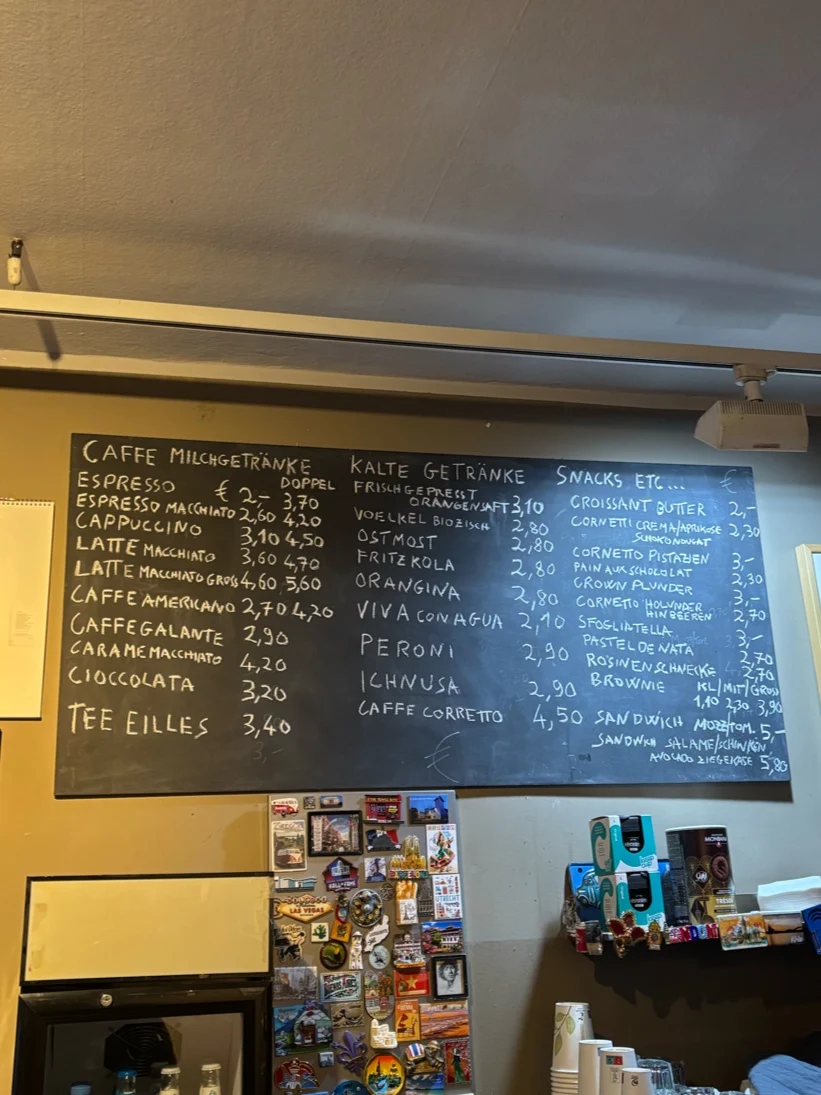 CAFFE MILCHGETRÄNKE
DOPPEL
ESPRESSO € 2,- 3,70
ESPRESSO MACCHIATO 2,60 4,20
CAPPUCCINO 3,10 4,50
LATTE MACCHIATO 3,60 4,70
LATTE MACCHIATO GROSS 4,60 5,60
CAFFE AMERICANO 2,70 4,20
CAFFE GALANTE 2,90
CARAMEMACCHIATO 4,20
CIOCCOLATA 3,20
TEE EILLES 3,40
KALTE GETRÄNKE
FRISCHGEPRESST
ORANGENSAFT 3,10
VOELKEL BIOZISCH 2,80
OSTMOST 2,80
FRITZKOLA 2,80
ORANGINA 2,80
VIVA CON AGUA 2,10
PERONI 2,90
ICHNUSA 2,90
CAFFE CORRETTO 4,50
€
SNACKS ETC... €
CROISSANT BUTTER 2,-
CORNETTI CREMA/APRIKOSE 2,30
SCHOKONOUGAT
CORNETTO PISTAZIEN 3,-
PAIN AUX SCHOCOLAT 2,30
CROWN PLUNDER 3,-
CORNETTO HOLUNDER 2,70
HIMBEEREN
SFOGLIATELLA 3,-
PASTEL DE NATA 2,70
ROSINENSCHNECKE 2,70
BROWNIE KL/MIT/GROSS
1,10 2,30 3,90
SANDWICH MOZZ/TOM. 5,-
SANDWICH SALAME/SCHINKEN/
AVOCADO ZIEGEKÄSE 5,80
LAS VEGAS
UTRECHT